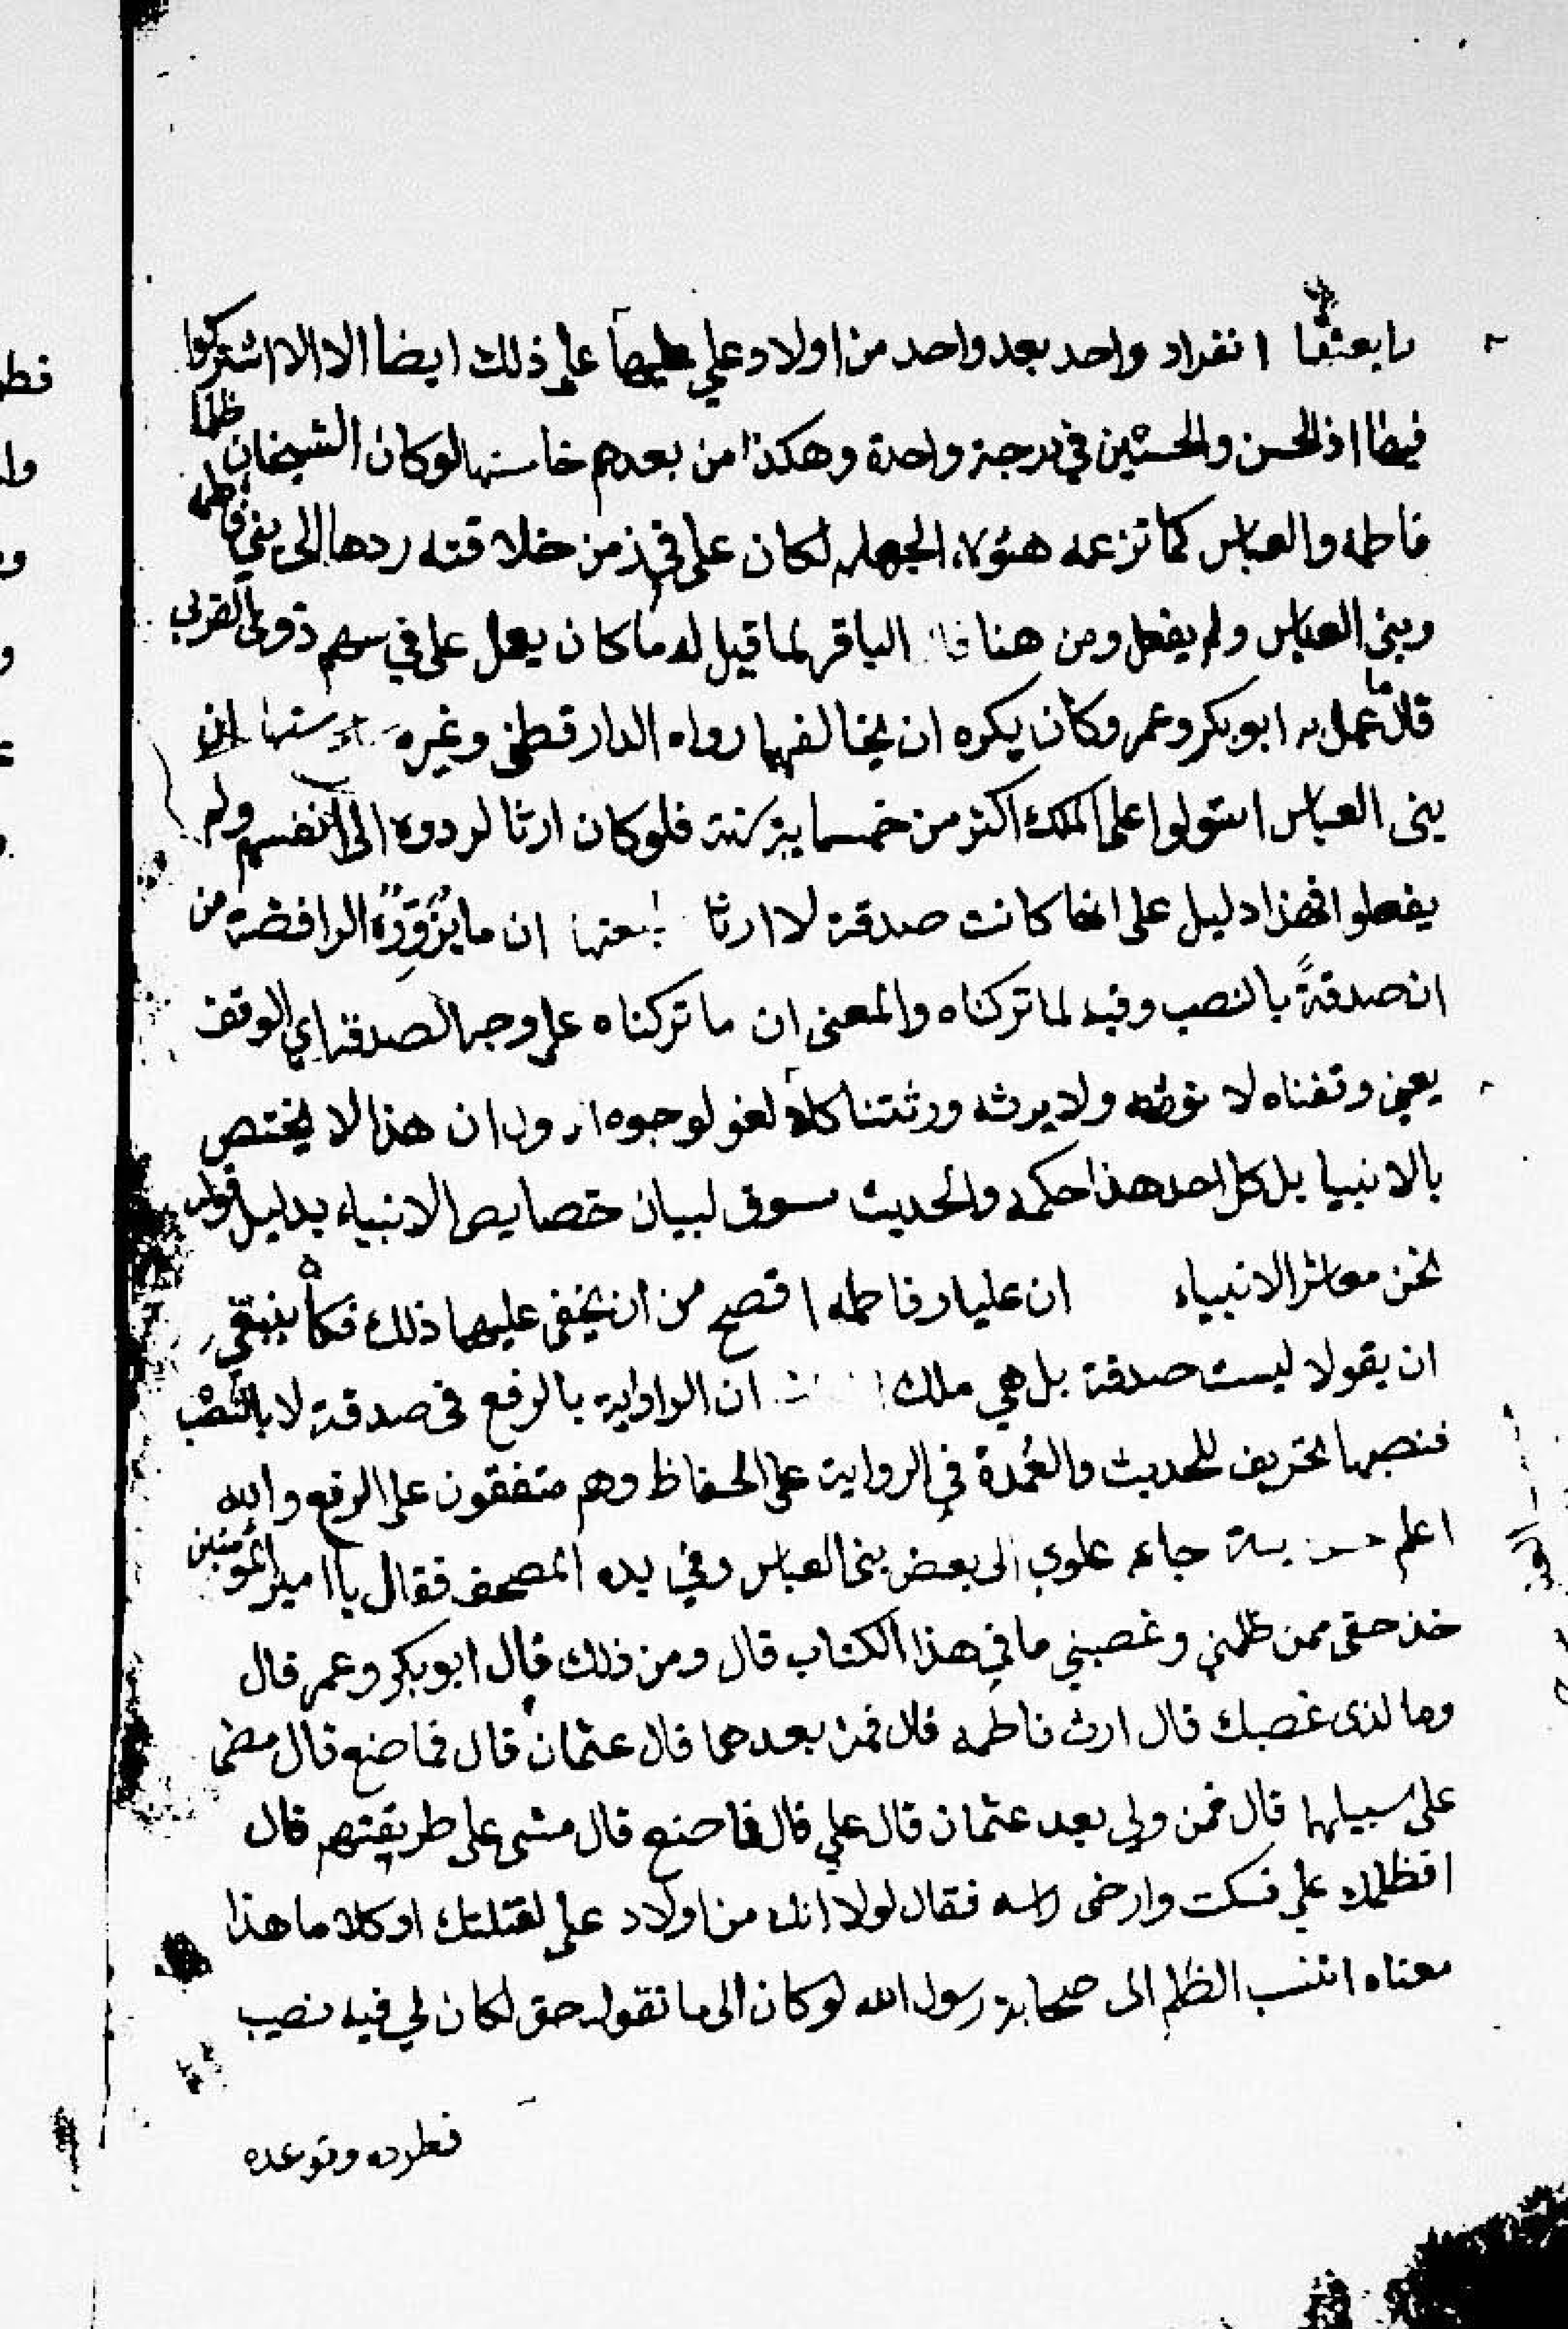 رابعتها انفراد واحد بعد واحد من اولاد علي عليها على ذلك ايضا الا الا اشتركوا
فيها اذ الحسن والحسين في درجة واحدة وهكذا من بعدهم خامستها لو كان الشيخان ظلما
فاطمه والعباس كما تزعمه هؤلاء الجهله لكان على في زمن خلافته ردها الى بني فاطمه
وبنى العباس ولم يفعل ومن هنا قال الباقر لما قيل له ما كان يعمل على في سهم ذوى القربى
قال ما عمل به ابو بكر وعمر وكان يكره ان يخالفهما رواه الدارقطنى وغيره ستها ان
بنى العباس استولوا على الملك اكثر من خمسماية سنة فلو كان ارثا لردوه الى انفسهم ولم
يفعلوا فهذا دليل على انها كانت صدقة لا ارثا ان ما يُزَوِّرُه الرافضة من
ان صدقةً بالنصب وقيد لما تركناه والمعنى ان ما تركناه على وجه الصدقه اي الوقف
يعني وقفناه لا نورثه ولا يرثه ورثتنا كله لغو لوجوه ان هذا لا يختص
بالانبيا بل كل احد هذا حكمه والحديث مسوق لبيان خصايص الانبياء بدليل قوله
نحن معاشر الانبياء ان عليا وفاطمه افصح من ان يخفى عليهما ذلك فكان ينبغي
ان يقولا ليست صدقة بل هي ملك ان الراواية بالرفع فى صدقة لا بالنصب
فنصبها تحريف للحديث والعُمدة في الرواية على الحفاظ وهم متفقون على الرفع والله
اعلم جاء علوي الى بعض بنى العباس وفي يده المصحف فقال يا امير المؤمنين
خذ حقى ممن ظلمني وغصبني ما في هذا الكتاب قال ومن ذلك قال ابو بكر وعمر قال
وما لذى غصبك قال ارث فاطمه قال فمن بعدهما قال عثمان قال فما صنع قال مضى
على سبيلهما قال فمن ولي بعد عثمان قال علي قال فما صنع قال مشى على طريقتهم قال
افظلمك علي فسكت وارخى راسه فقال لولا انك من اولاد على لقتلتك او كلاما هذا
معناه اتنسب الظلم الى صحابة رسول الله لو كان الى ما تقوله حق لكان لي فيه نصيب
فطرده وتوعده